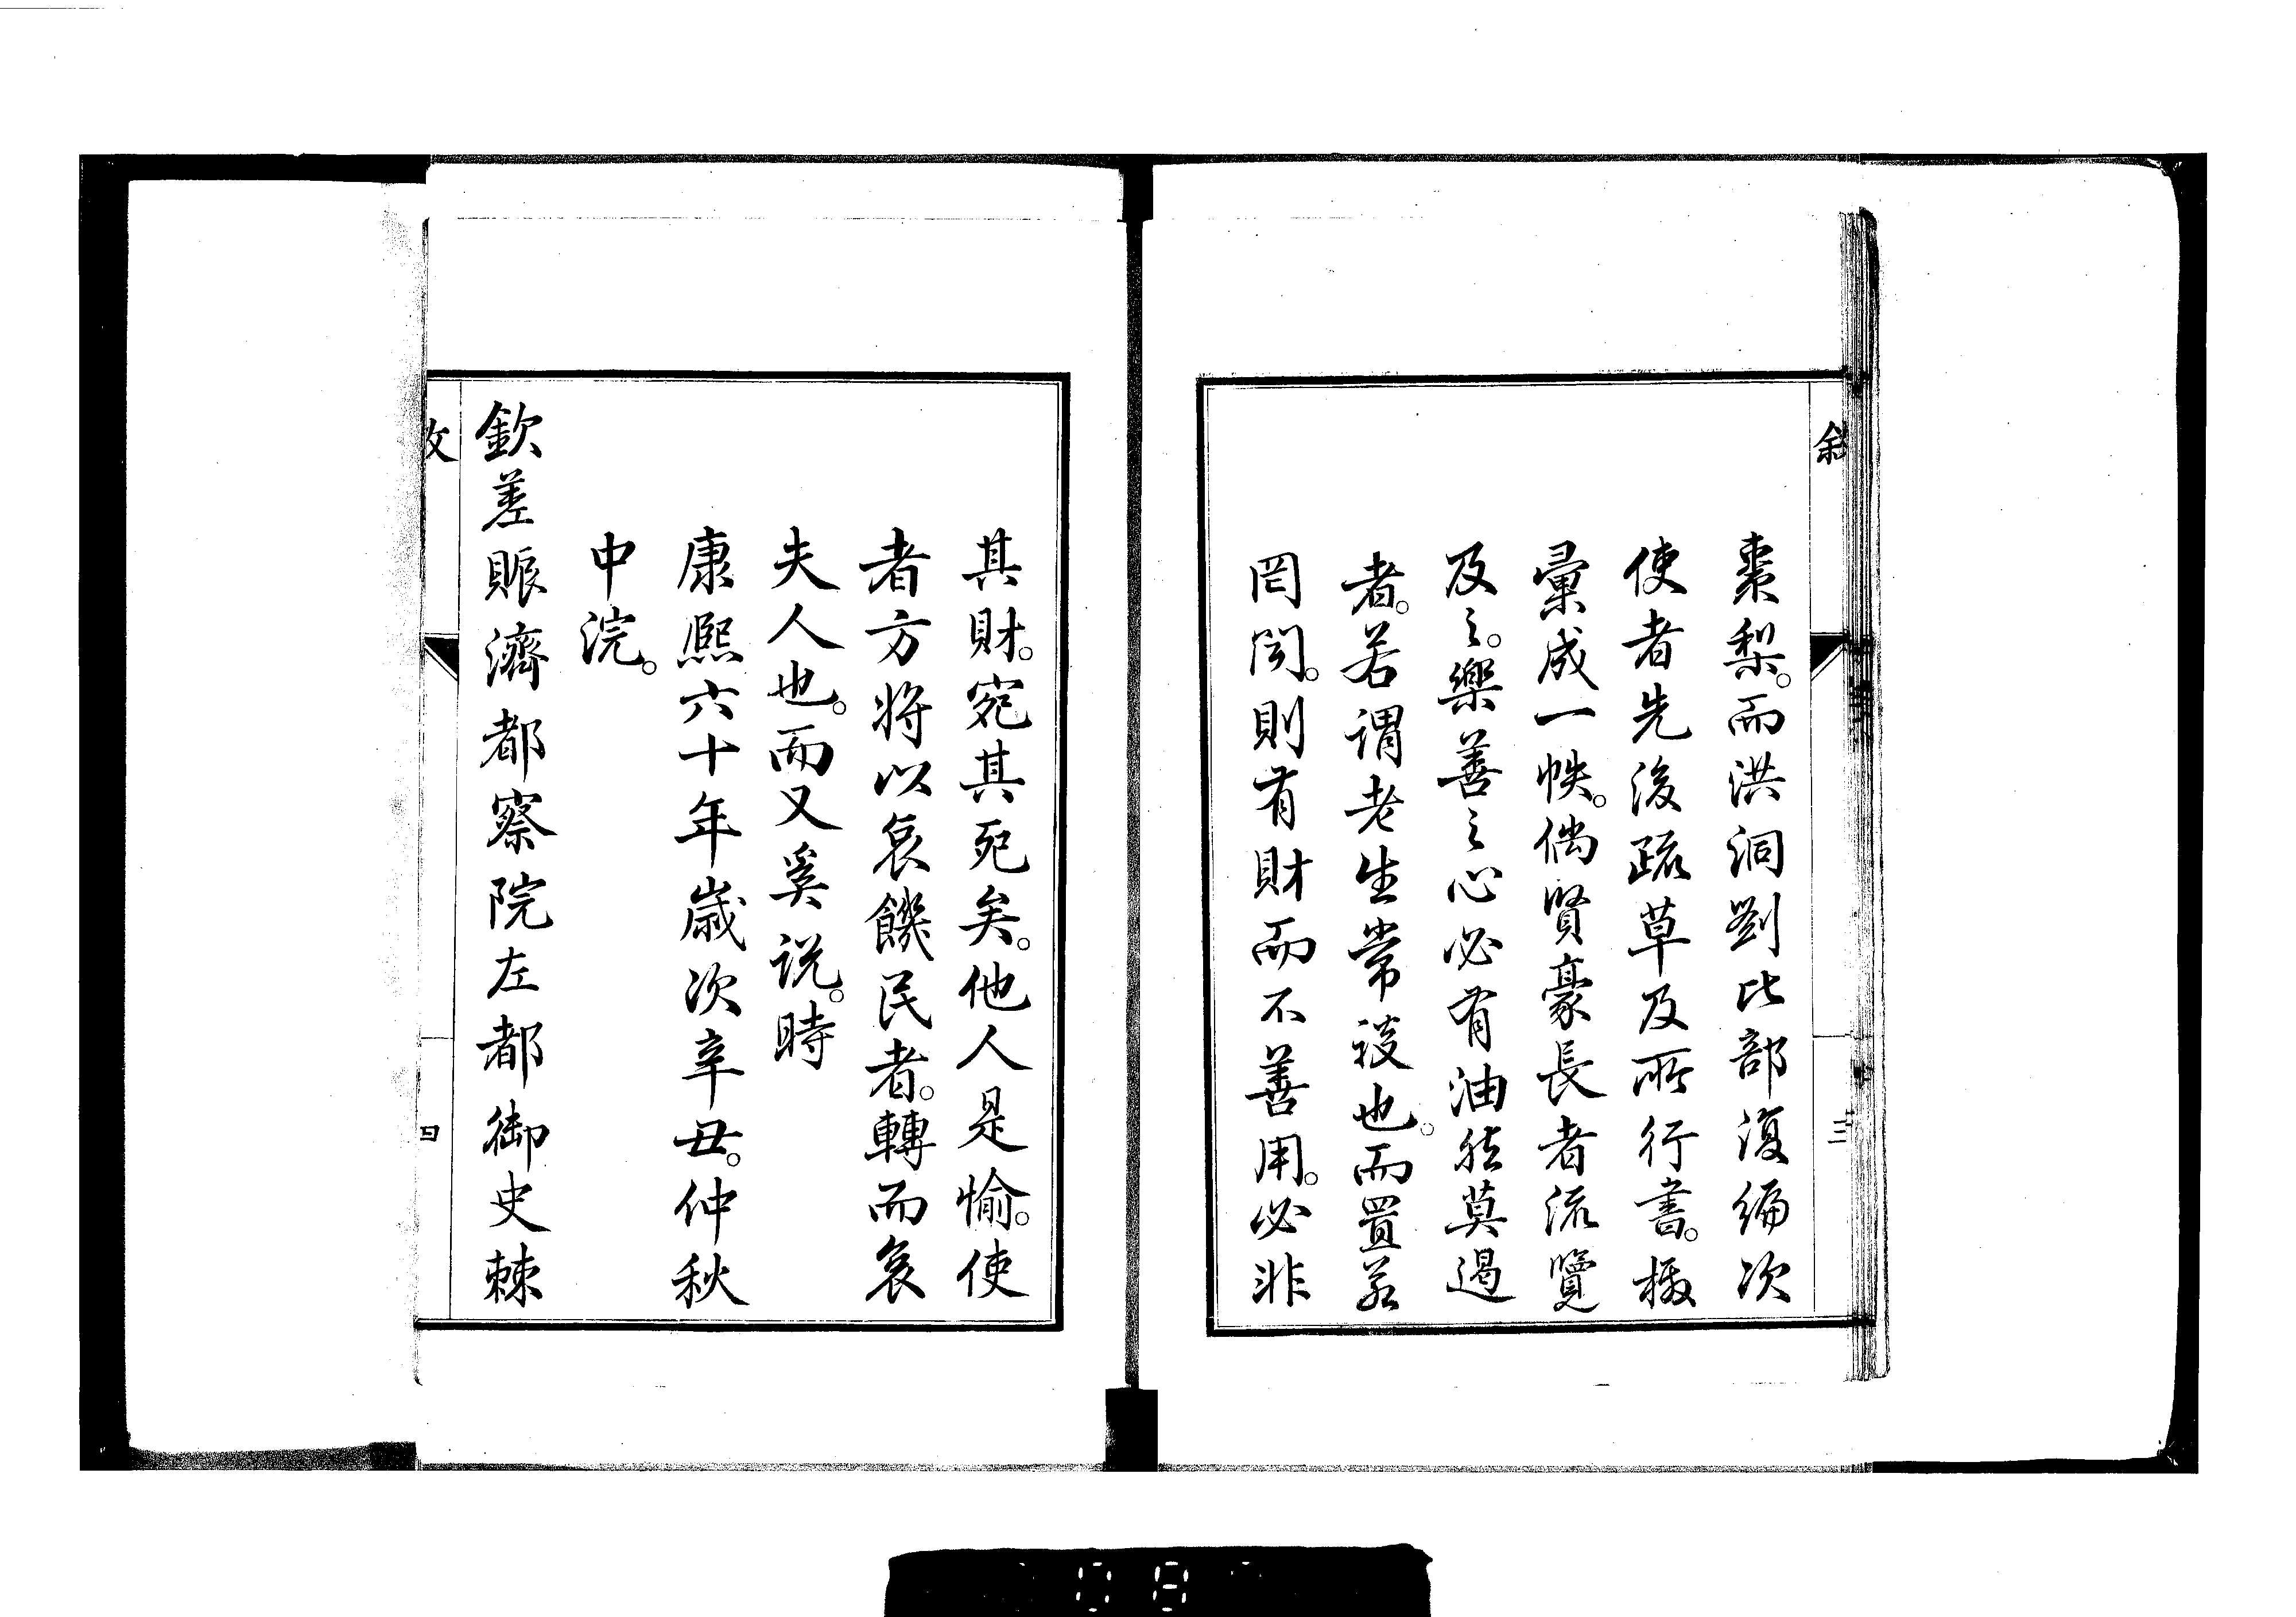 棗梨。而洪洞劉比部復編次
使者先後疏草及所行書檄
彙成一帙。倘賢豪長者流覽
及之。樂善之心必有油然莫遏
者。若謂老生常談也。而置若
罔聞。則有財而不善用。必非
其財。宛其死矣。他人是愉。使
者方將以哀饑民者。轉而哀
夫人也。而又奚說。時
康熙六十年歲次辛丑。仲秋
中浣。
欽差賑濟都察院左都御史棘